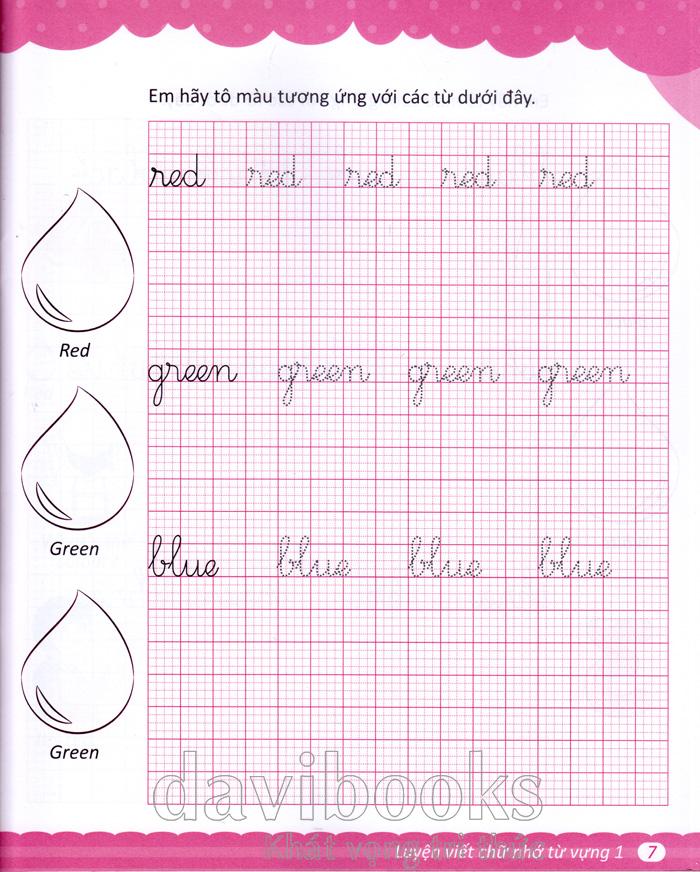 Em hãy tô màu tương ứng với các từ dưới đây.
red red red red red
Red
green green green green
Green
blue blue blue blue
Green
davibooks
Khát vọng tri thức
Luyện viết chữ nhỏ từ vựng 1 7